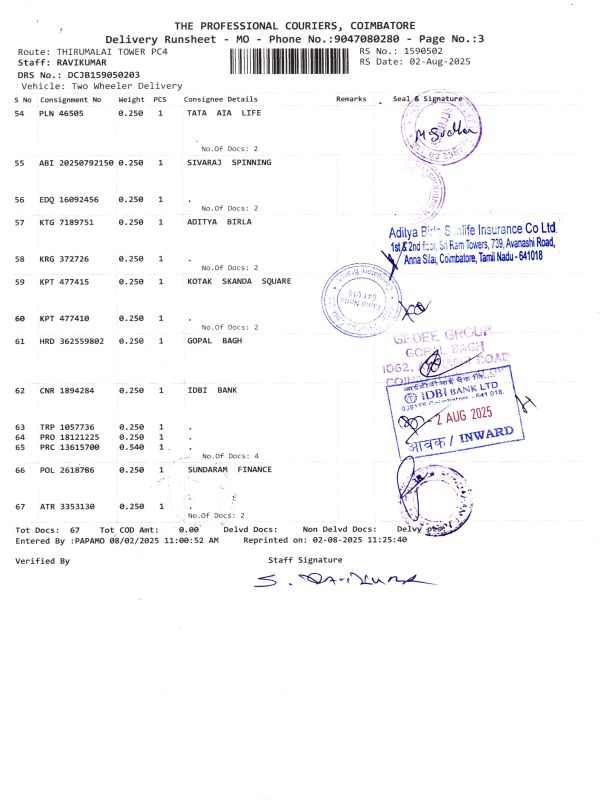 THE PROFESSIONAL COURIERS, COIMBATORE
Delivery Runsheet - MO - Phone No.:9047080280 - Page No.:3
Route: THIRUMALAI TOWER PC4
RS No.: 1590502
Staff: RAVIKUMAR
RS Date: 02-Aug-2025
DRS No.: DCJB159050203
Vehicle: Two Wheeler Delivery
S No Consignment No Weight PCS Consignee Details Remarks Seal & Signature
54 PLN 46505 0.250 1 TATA AIA LIFE
M Sudha
No.Of Docs: 2
55 ABI 20250792150 0.250 1 SIVARAJ SPINNING
56 EDQ 16092456 0.250 1 .
No.Of Docs: 2
57 KTG 7189751 0.250 1 ADITYA BIRLA
Aditya Birla Sunlife Insurance Co Ltd.
1st & 2nd floor, Sri Ram Towers, 739, Avanashi Road,
Anna Silai, Coimbatore, Tamil Nadu - 641018
58 KRG 372726 0.250 1 .
No.Of Docs: 2
59 KPT 477415 0.250 1 KOTAK SKANDA SQUARE
Tamil Nadu
641 018
60 KPT 477410 0.250 1 .
No.Of Docs: 2
61 HRD 362559802 0.250 1 GOPAL BAGH
GEDEE GROUP
GOPAL BAGH
1062, ROAD
No.Of Docs: 2
62 CNR 1894284 0.250 1 IDBI BANK
IDBI BANK LTD
- 2 AUG 2025
आवक / INWARD
63 TRP 1057736 0.250 1 .
64 PRO 18121225 0.250 1 .
65 PRC 13615700 0.540 1 .
No.Of Docs: 4
66 POL 2618786 0.250 1 SUNDARAM FINANCE
67 ATR 3353130 0.250 1 .
No.Of Docs: 2
Tot Docs: 67 Tot COD Amt: 0.00 Delvd Docs: Non Delvd Docs: Delvy
Entered By :PAPAMO 08/02/2025 11:00:52 AM Reprinted on: 02-08-2025 11:25:40
Verified By Staff Signature
S. RAVIKUMAR